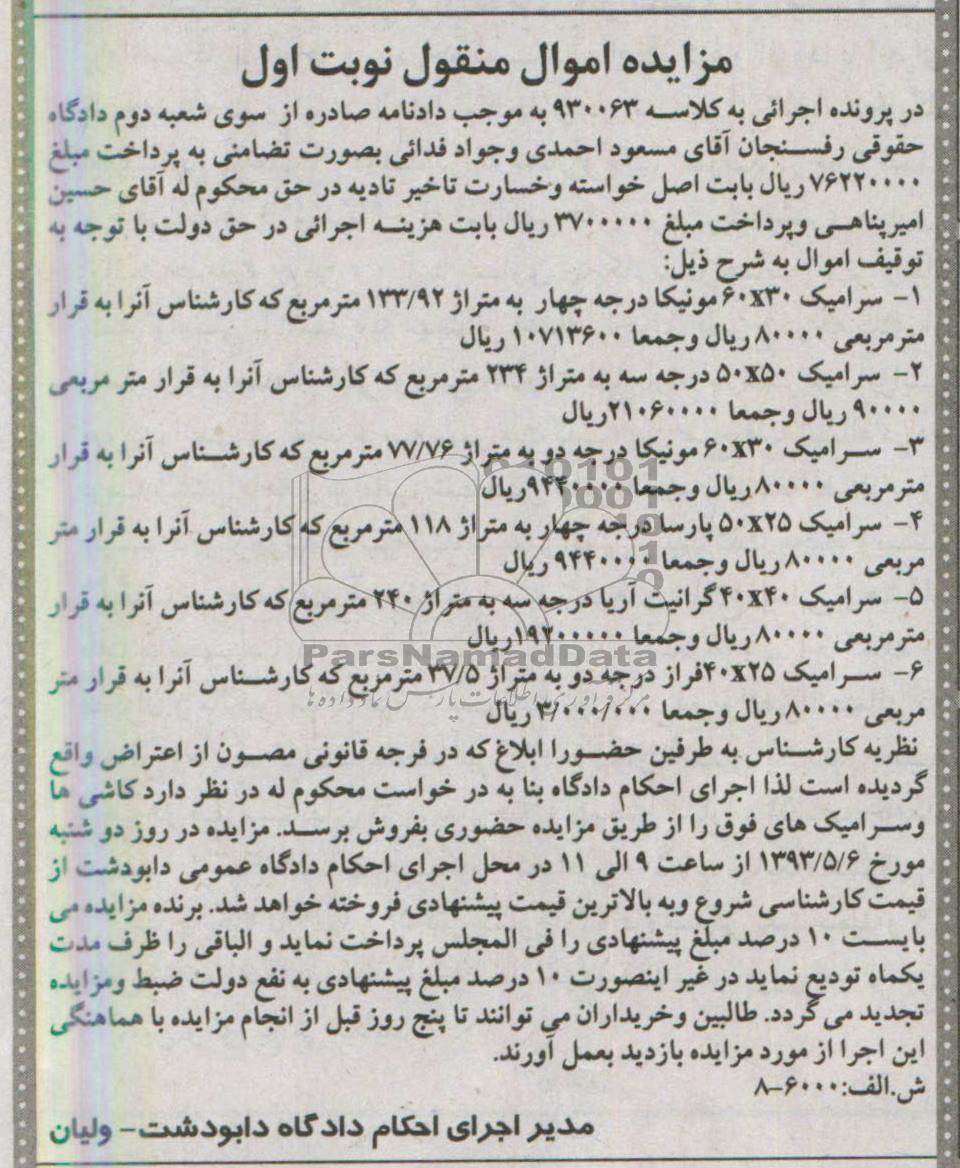 مزایده اموال منقول نوبت اول
در پرونده اجرائی به کلاسه ۹۳۰۰۶۳ به موجب دادنامه صادره از سوی شعبه دوم دادگاه
حقوقی رفسنجان آقای مسعود احمدی وجواد فدائی بصورت تضامنی به پرداخت مبلغ
۷۶۲۲۰۰۰۰ ریال بابت اصل خواسته وخسارت تاخیر تادیه در حق محکوم له آقای حسین
امیرپناهی وپرداخت مبلغ ۳۷۰۰۰۰۰ ریال بابت هزینه اجرائی در حق دولت با توجه به
توقیف اموال به شرح ذیل:
۱- سرامیک ۶۰x۳۰ مونیکا درجه چهار به متراژ ۱۳۳/۹۲ مترمربع که کارشناس آنرا به قرار
مترمربعی ۸۰۰۰۰ ریال وجمعا ۱۰۷۱۳۶۰۰ ریال
۲- سرامیک ۵۰x۵۰ درجه سه به متراژ ۲۳۴ مترمربع که کارشناس آنرا به قرار متر مربعی
۹۰۰۰۰ ریال وجمعا ۲۱۰۶۰۰۰۰ریال
۳- سرامیک ۶۰x۳۰ مونیکا درجه دو به متراژ ۷۷/۷۶ مترمربع که کارشناس آنرا به قرار
مترمربعی ۸۰۰۰۰ ریال وجمعا ۹۴۴۰۰۰۰ریال
۴- سرامیک ۵۰x۲۵ پارسا درجه چهار به متراژ ۱۱۸ مترمربع که کارشناس آنرا به قرار متر
مربعی ۸۰۰۰۰ ریال وجمعا ۹۴۴۰۰۰۰ ریال
۵- سرامیک ۴۰x۴۰ گرانیت آریا درجه سه به متراژ ۲۴۰ مترمربع که کارشناس آنرا به قرار
مترمربعی ۸۰۰۰۰ ریال وجمعا ۱۹۲۰۰۰۰۰ریال
ParsNamadData
۶- سرامیک ۴۰x۲۵فراز درجه دو به متراژ ۳۷/۵ مترمربع که کارشناس آنرا به قرار متر
مرکز فرآوری اطلاعات پارس نماد داده ها
مربعی ۸۰۰۰۰ ریال وجمعا ۳/۰۰۰/۰۰۰ ریال
نظریه کارشناس به طرفین حضورا ابلاغ که در فرجه قانونی مصون از اعتراض واقع
گردیده است لذا اجرای احکام دادگاه بنا به در خواست محکوم له در نظر دارد کاشی ها
وسرامیک های فوق را از طریق مزایده حضوری بفروش برسد. مزایده در روز دو شنبه
مورخ ۱۳۹۳/۵/۶ از ساعت ۹ الی ۱۱ در محل اجرای احکام دادگاه عمومی دابودشت از
قیمت کارشناسی شروع وبه بالاترین قیمت پیشنهادی فروخته خواهد شد. برنده مزایده می
بایست ۱۰ درصد مبلغ پیشنهادی را فی المجلس پرداخت نماید و الباقی را ظرف مدت
یکماه تودیع نماید در غیر اینصورت ۱۰ درصد مبلغ پیشنهادی به نفع دولت ضبط ومزایده
تجدید می گردد. طالبین وخریداران می توانند تا پنج روز قبل از انجام مزایده با هماهنگی
این اجرا از مورد مزایده بازدید بعمل آورند.
ش.الف:۶۰۰۰-۸
مدیر اجرای احکام دادگاه دابودشت- ولیان